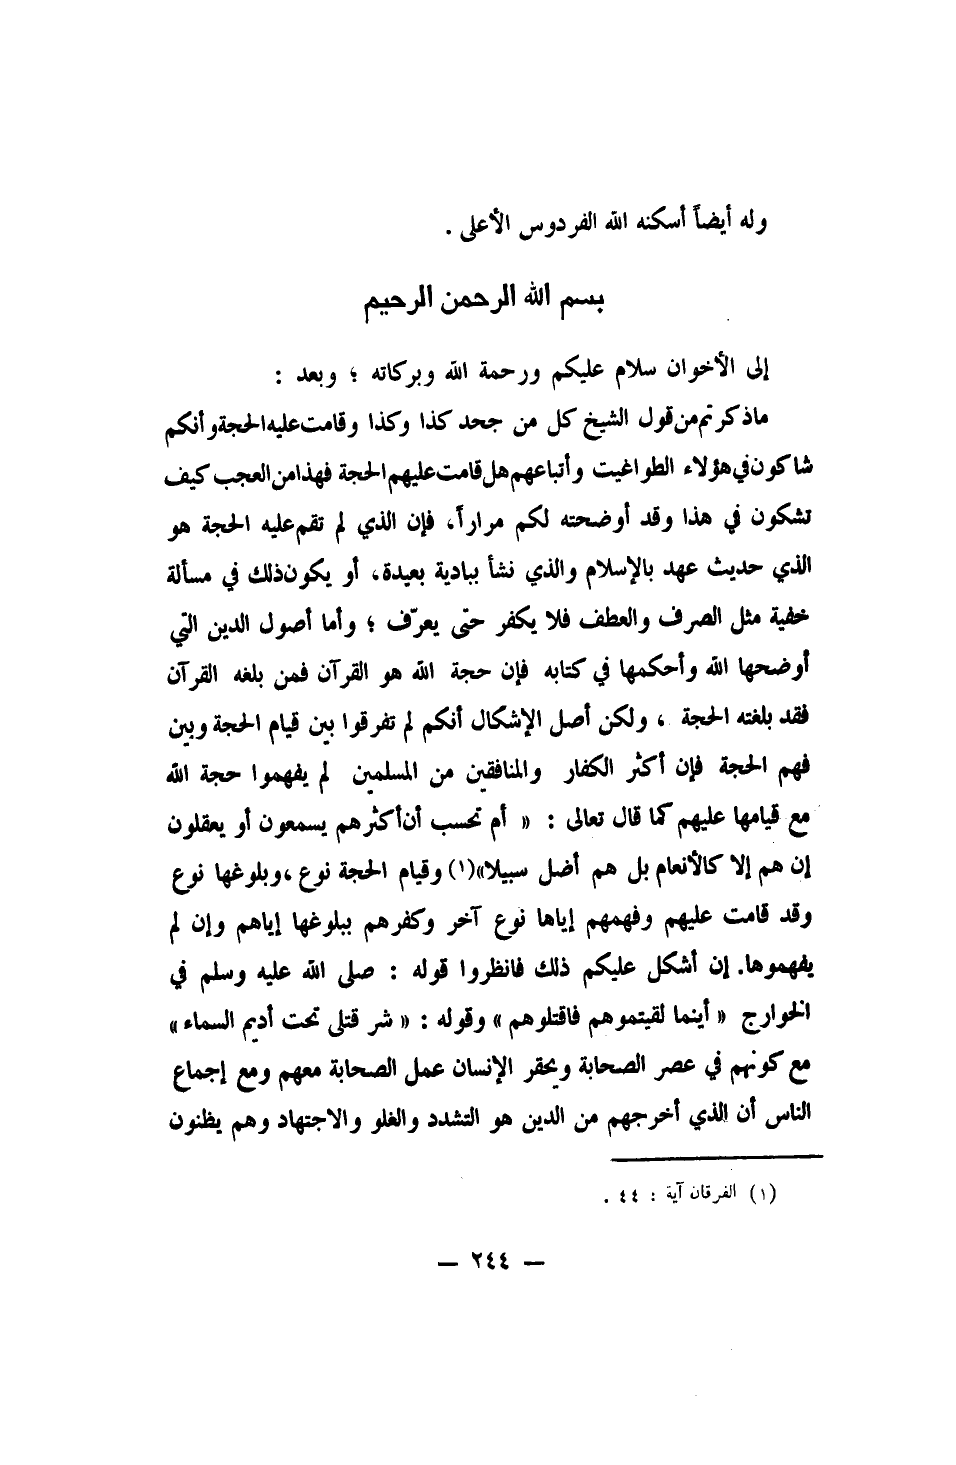 وله أيضاً أسكنه الله الفردوس الأعلى .
بسم الله الرحمن الرحيم
إلى الأخوان سلام عليكم ورحمة الله وبركاته ؛ وبعد :
ماذكرتم من قول الشيخ كل من جحد كذا وكذا وقامت عليه الحجة وأنكم
شاكون في هؤلاء الطواغيت وأتباعهم هل قامت عليهم الحجة فهذا من العجب كيف
تشكون في هذا وقد أوضحته لكم مراراً، فإن الذي لم تقم عليه الحجة هو
الذي حديث عهد بالإسلام والذي نشأ ببادية بعيدة، أو يكون ذلك في مسألة
خفية مثل الصرف والعطف فلا يكفر حتى يعرّف ؛ وأما أصول الدين التي
أوضحها الله وأحكمها في كتابه فإن حجة الله هو القرآن فمن بلغه القرآن
فقد بلغته الحجة ، ولكن أصل الإشكال أنكم لم تفرقوا بين قيام الحجة وبين
فهم الحجة فإن أكثر الكفار والمنافقين من المسلمين لم يفهموا حجة الله
مع قيامها عليهم كما قال تعالى : « أم تحسب أن أكثرهم يسمعون أو يعقلون
إن هم إلا كالأنعام بل هم أضل سبيلا»(١) وقيام الحجة نوع ، وبلوغها نوع
وقد قامت عليهم وفهمهم إياها نوع آخر وكفرهم ببلوغها إياهم وإن لم
يفهموها. إن أشكل عليكم ذلك فانظروا قوله : صلى الله عليه وسلم في
الخوارج « أينما لقيتموهم فاقتلوهم » وقوله : « شر قتلى تحت أديم السماء »
مع كونهم في عصر الصحابة ويحقر الإنسان عمل الصحابة معهم ومع إجماع
الناس أن الذي أخرجهم من الدين هو التشدد والغلو والاجتهاد وهم يظنون
(١) الفرقان آية : ٤٤ .
— ٢٤٤ —